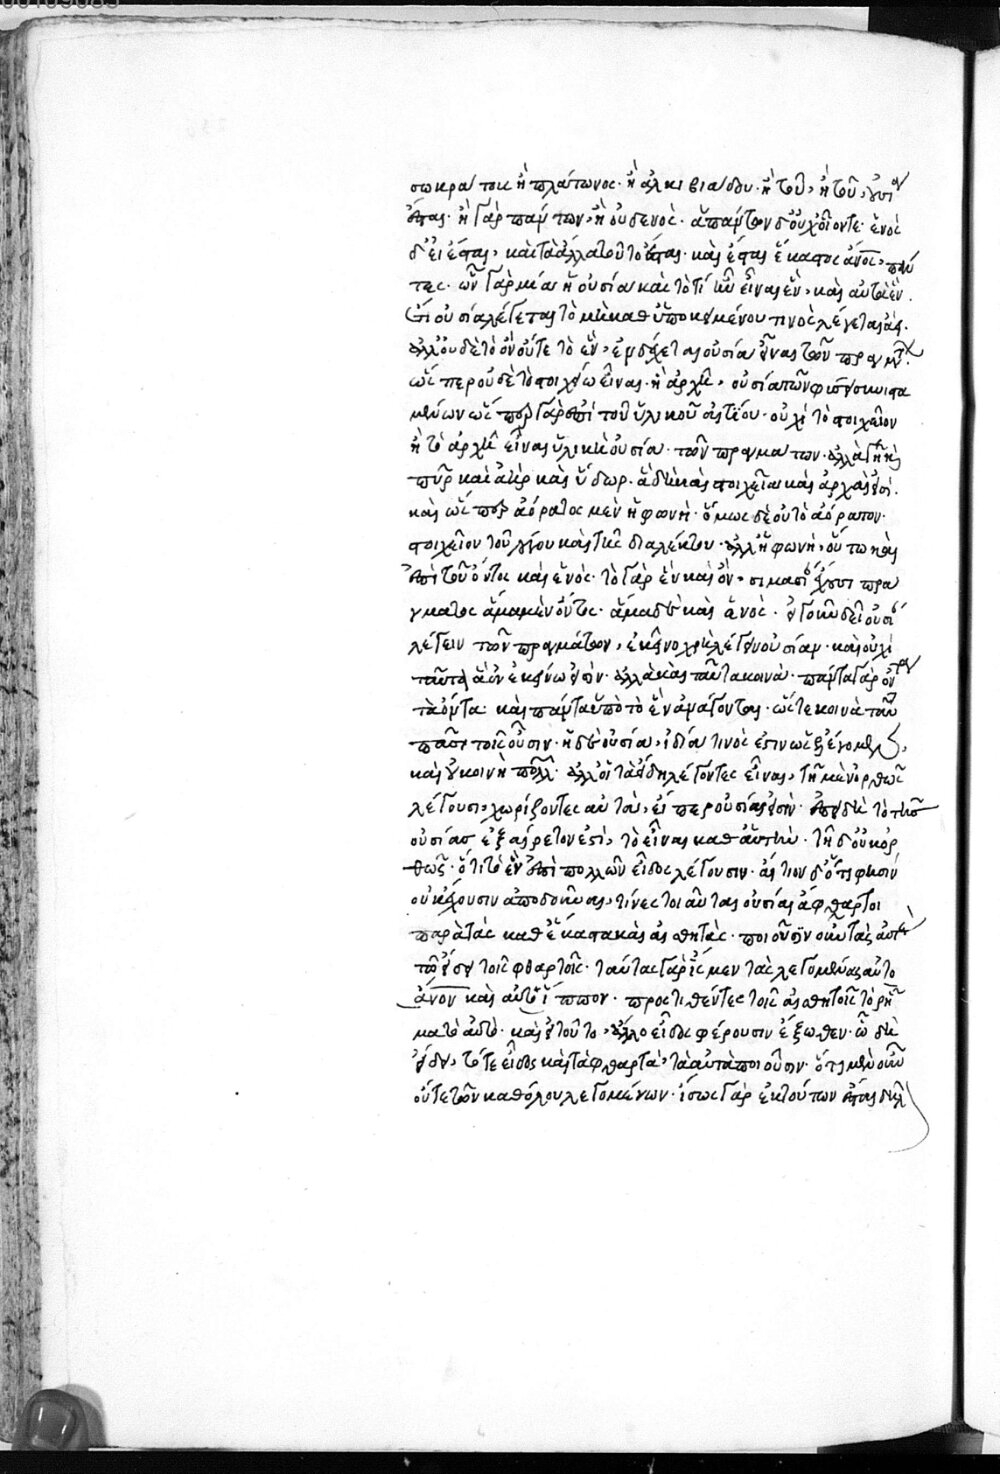 σωκράτους ἢ πλάτωνος· ἢ ἀλκιβιάδου· ἢ τοῦ, ἢ τοῦ,
ἔσται· ἢ γὰρ πάντων, ἢ οὐδενός· ἁπάντων δ' οὐχ οἷόν τε· ἑνὸς
δ' εἰ ἔσται, καὶ τὰ ἄλλα τοῦτο ἔσται· καὶ ἔσται ἕκαστος ἄνος,
τες· ὧν γὰρ μία ἡ οὐσία καὶ τὸ τί ἦν εἶναι ἕν, καὶ αὐτὰ ἕν.
ἔτι οὐσία λέγεται τὸ μὴ καθ' ὑποκειμένου τινὸς λέγεται
ἀλλ' οὐδὲ τὸ ὂν οὔτε τὸ ἓν, ἐνδέχεται οὐσίαν εἶναι τῶν πραγμτ.
ὥσπερ οὐδὲ τὸ στοιχείω εἶναι· ἢ ἀρχῆ, οὐσία τῶν
μένων ὥσπερ γὰρ ἐπὶ τοῦ ὑλικοῦ αἰτίου· οὐχὶ τὸ στοιχεῖον
ἢ τὸ ἀρχῆ εἶναι ὑλικὴ οὐσία· τῶν πραγμάτων· ἀλλὰ γῆ ἢ
πῦρ καὶ ἀὴρ καὶ ὕδωρ· ἃ δὴ καὶ στοιχεῖα καὶ ἀρχαὶ εἰσί.
καὶ ὥσπερ ἀόρατος μὲν ἡ φωνή· ὅμως δὲ οὐ τὸ ἀόρατον·
στοιχεῖον τοῦ λόγου καὶ τῆς διαλέκτου· ἀλλ' ἡ φωνή, οὕτω καὶ
ἐπὶ τοῦ ὄντος καὶ ἑνός· τὸ γὰρ ἓν καὶ ὂν, πρά
γματος ἅμα μὲν ὄντος· ἅμα δὲ καὶ ἑνός·
λέγειν τῶν πραγμάτων, ἐκεῖνο χρὴ λέγειν οὐσίαν· καὶ οὐχὶ
ταῦτα ἃ ἐν ἐκείνω εἰσίν· ἀλλὰ καὶ ταῦτα κοινά· πάντα γὰρ
τὰ ὄντα· καὶ πάντα ὑπὸ τὸ ἓν ἀνάγονται· ὥστε κοινὰ ταῦ
πᾶσι τοῖς οὖσιν· ἡ δὲ οὐσία, ἰδία τινός ἐστιν ὡς ἐλέγομεν,
καὶ οὐ κοινὴ πολλ· ἀλλ' οἱ τὰ εἴδη λέγοντες εἶναι, τῆ μὲν ὀρθῶς
λέγουσι, χωρίζοντες αὐτά, εἴπερ οὐσίαι εἰσίν· ἐπειδὴ τὸ τῆς
οὐσίας ἐξαίρετόν ἐστι, τὸ εἶναι καθ' αὑτήν· τῆ δ' οὐκ ὀρ
θῶς· ὅτι τὸ ἓν ἐπὶ πολλῶν εἶδος λέγουσιν· αἴτιον δ' ὅτι φησὶν
οὐκ ἔχουσιν ἀποδοῦναι, τίνες τοιαῦται οὐσίαι ἄφθαρτοι
παρὰ τὰς καθ' ἕκαστα καὶ αἰσθητάς· ποιοῦσιν οὖν τὰς αὐτὰς
τῶ εἴδει τοῖς φθαρτοῖς· ταύτας γὰρ ἴσμεν τὰς λεγομένας αὐτο
άνον καὶ αὐτοΐππον· προστιθέντες τοῖς αἰσθητοῖς τὸ ρῆ
μα τὸ αὐτό· καὶ εἰ τοῦτο, ἄλλο εἶδος φέρουσιν ἔξωθεν·
εἴδει, τό τε εἶδος καὶ τὰ φθαρτὰ, τὰ αὐτὰ ποιοῦσιν· ὅτι μὲν οὖν
οὔτε τῶν καθόλου λεγομένων· ἴσως γὰρ ἐκ τούτων ἔσται δῆλ